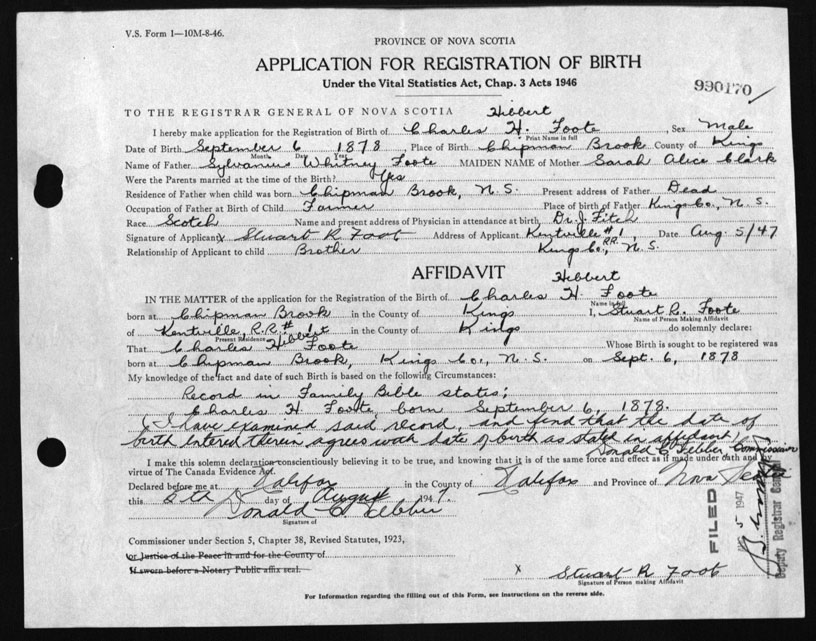 V.S. Form 1—10M-8-46.
PROVINCE OF NOVA SCOTIA
APPLICATION FOR REGISTRATION OF BIRTH
Under the Vital Statistics Act, Chap. 3 Acts 1946
990170
TO THE REGISTRAR GENERAL OF NOVA SCOTIA
Hibbert
I hereby make application for the Registration of Birth of Charles H. Foote, Sex Male
Print Name in full
Date of Birth September 6 1878, Place of Birth Chipman Brook County of Kings
Month Date Year
Name of Father Sylvanus Whitney Foote MAIDEN NAME of Mother Sarah Alice Clark
Were the Parents married at the time of the Birth? Yes
Residence of Father when child was born Chipman Brook, N.S. Present address of Father Dead
Occupation of Father at Birth of Child Farmer Place of birth of Father Kings Co., N.S.
Race Scotch Name and present address of Physician in attendance at birth Dr. J. Fitch
Signature of Applicant x Stuart R Foot Address of Applicant Kentville # 1 Date Aug. 5/47
RR.
Relationship of Applicant to child Brother Kings Co., N.S.
AFFIDAVIT
Hibbert
IN THE MATTER of the application for the Registration of the Birth of Charles H. Foote
Name in full
born at Chipman Brook in the County of Kings I, Stuart R. Foote
Name of Person Making Affidavit
of Kentville, R.R. # 1 in the County of Kings do solemnly declare:
Present Residence
Hibbert
That Charles Foote Whose Birth is sought to be registered was
born at Chipman Brook, Kings Co., N.S. on Sept. 6, 1878
My knowledge of the fact and date of such Birth is based on the following Circumstances:
Record in Family Bible states;
Charles H. Foote, born September 6, 1878.
(I have examined said record, and find that the date of
birth entered therein agrees with date of birth as stated in affidavit)
Donald C. Commission
I make this solemn declaration conscientiously believing it to be true, and knowing that it is of the same force and effect as if made under oath and by
virtue of The Canada Evidence Act.
Declared before me at Halifax in the County of Halifax and Province of Nova Scotia
this 6th day of August 1947.
Donald C.
Signature of
FILED
5 1947
Deputy Registrar General
Commissioner under Section 5, Chapter 38, Revised Statutes, 1923,
or Justice of the Peace in and for the County of
If sworn before a Notary Public affix seal.
x Stuart R Foot
Signature of Person making Affidavit
For Information regarding the filling out of this Form, see instructions on the reverse side.